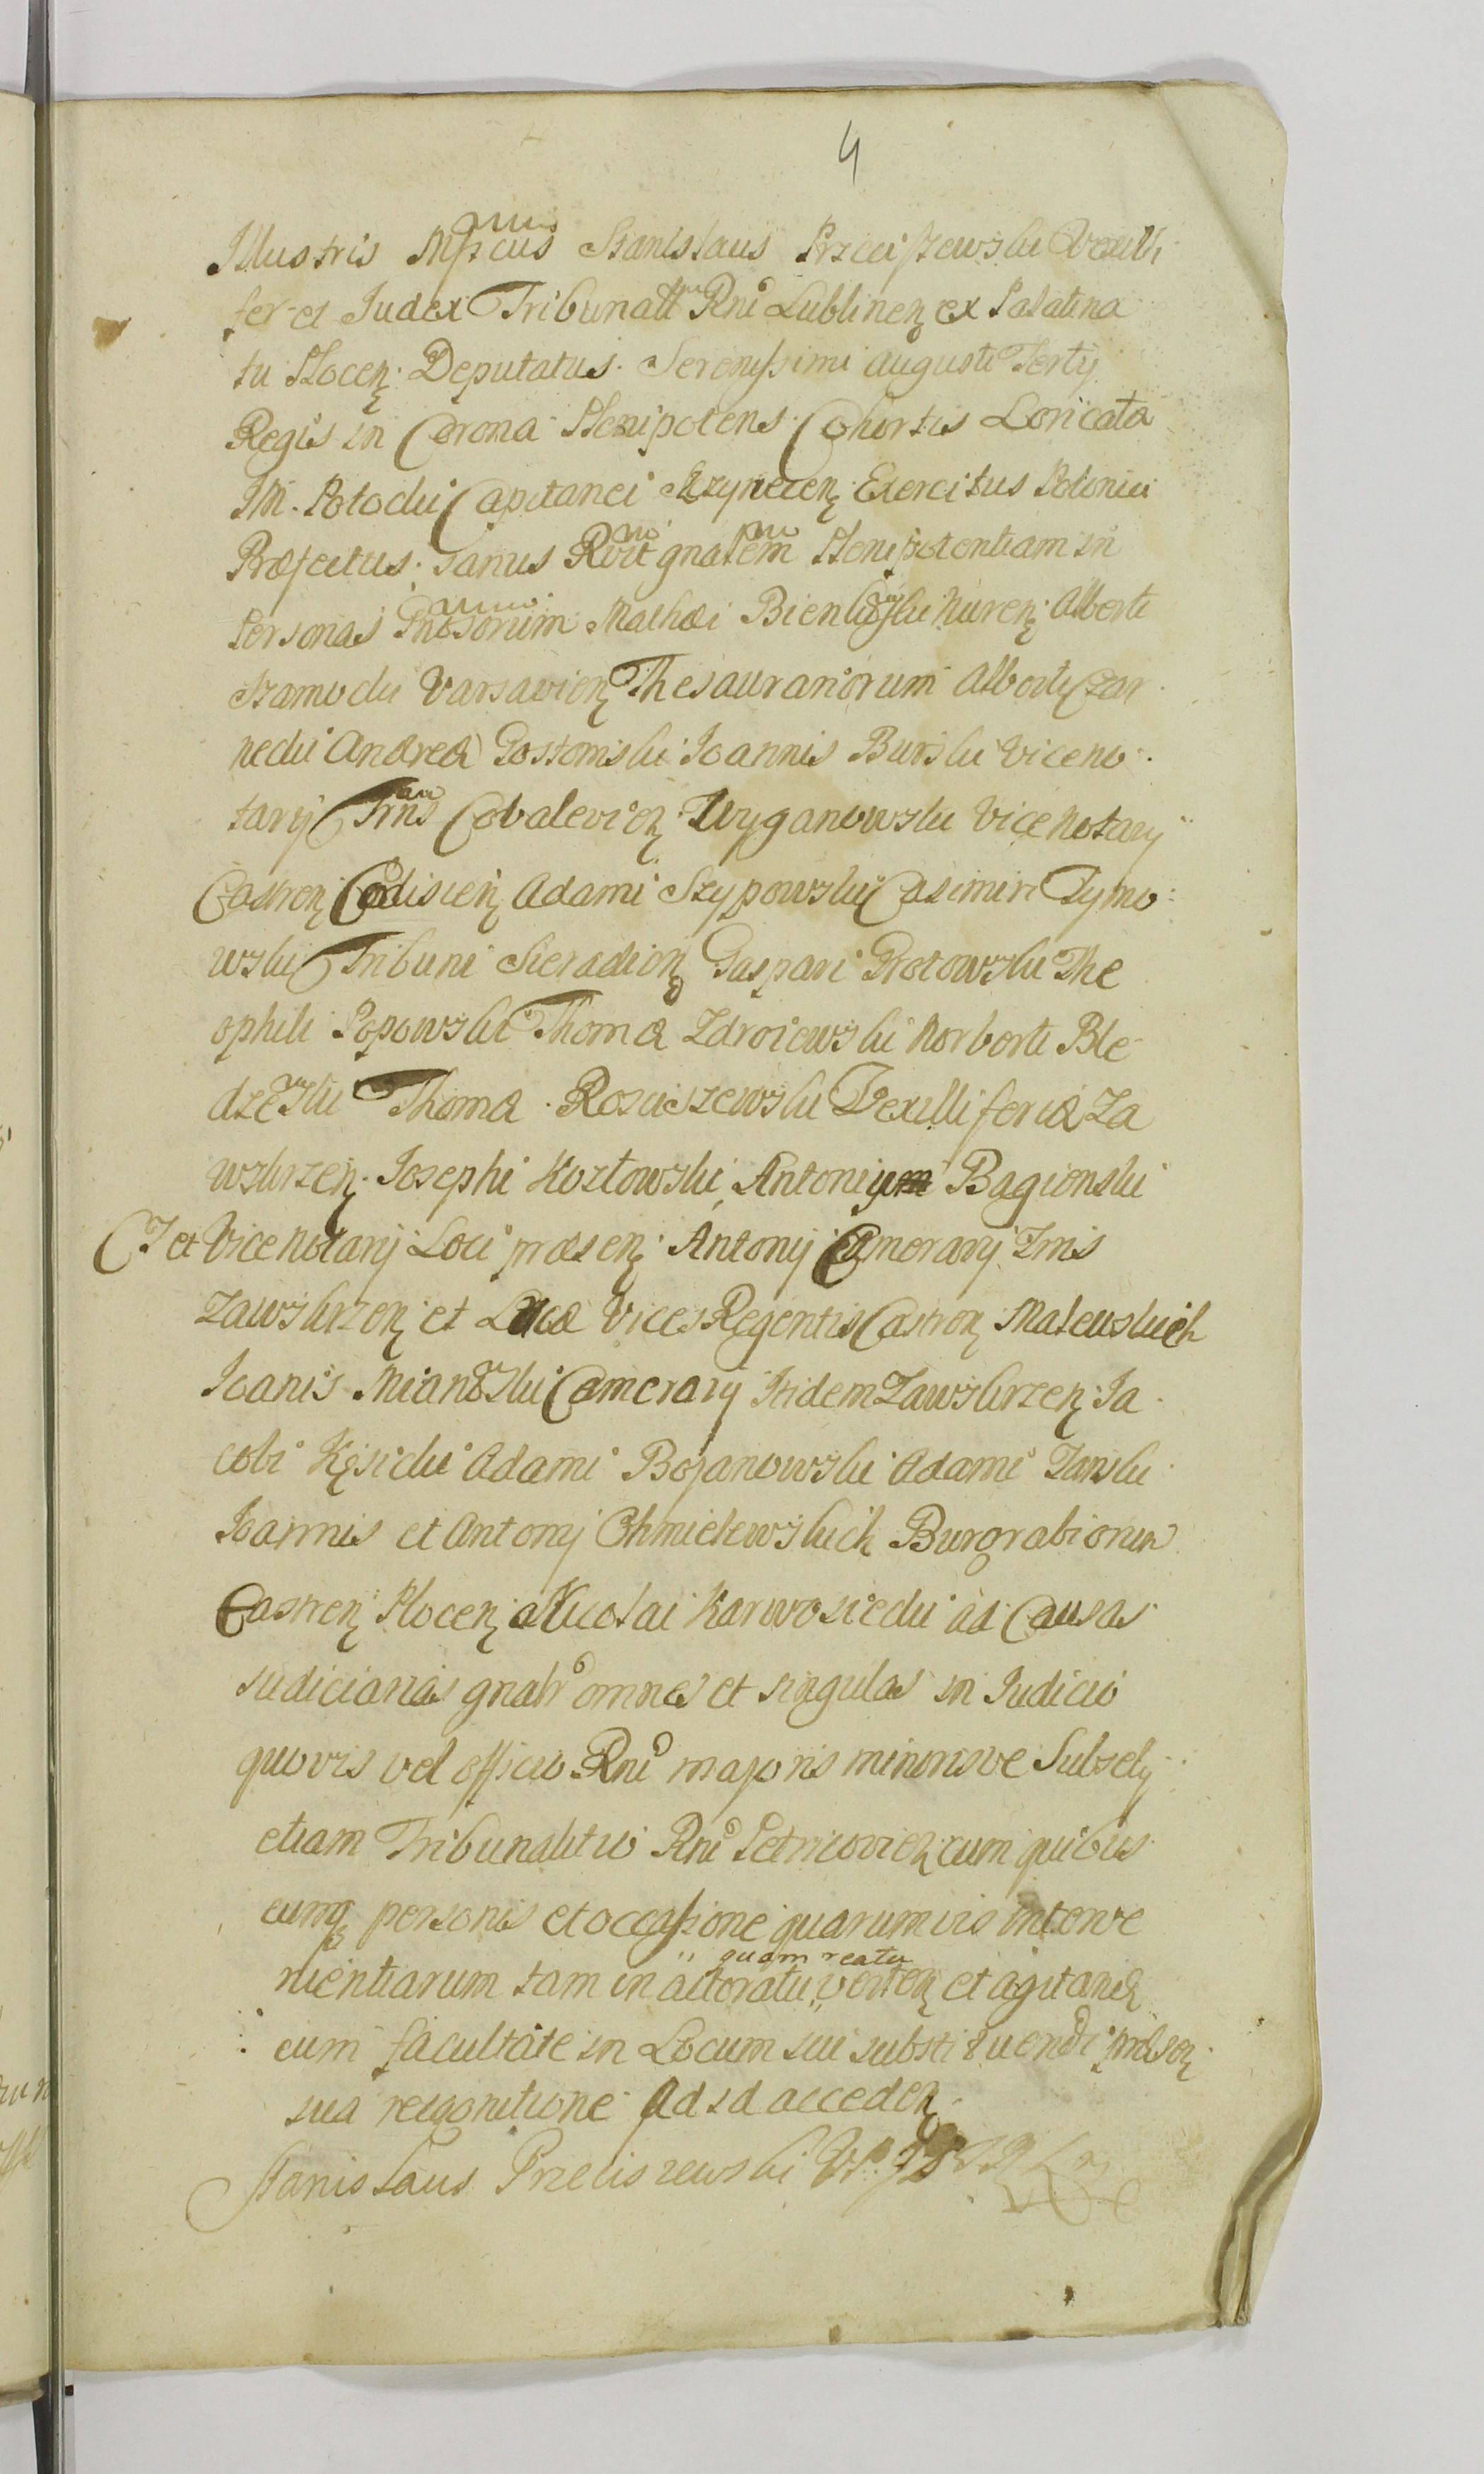 4
Illustris Mgficus Stanislaus Przeciszewski Vexilli
fer et Judex Tribunatt Rni Lublinen ex Palatina
tu Plocen: Deputatus. Serenissimi Augusti Tertij
Regis in Corona Plenipotens Cohortis Loricata
JM. Potocki Capitanei Exercitus Polonici
Præfectus. Sanus Rvit gnalem Plenipotentiam in
Personas Gnosorum Mathæi Nuren: Alberti
Szamocki Varsavien Thesaurariorum Alberti Czar
necki Andreæ Gostomski Joannis Burski Viceno
tarij Trns Wyganowski Vice Notarij
Castren Adami Szypowski Casimiri Tymo
wski Tribuni Sieradien Gaspari Grotowski The
ophili Popowski Thomæ Zdroiewski Norberti Ble
dzewski Thomæ Rosciszewski Vexilliferidæ Za
wskrzen. Josephi Kozłowski, Antonij Bagienski
CJ et Vice Notarij Loci præsen: Antonij Camerarij Trns
Zawskrzen et Lucæ Vices Regentis Castren Mateuskich
Joanis Camerarij Itidem Zawskrzen: Ja
cobi Kęsicki Adami Bojanowski Adami Zanski
Joannis et Antonij Chmielewskich Burgrabiorum
Castren Plocen Nicolai Karwosiecki ad Causas
judiciarias gnalr omnes et singulas in Judicio
quovis vel officio Rni majoris minorisve Subselij
etiam Tribunalitio Rni Petricovien cum quibus
cumq personis et occasione quarumvis interve
nientiarum tam in actoratu quam reatu verten et agitand
cum facultate in Locum sui substituendi præsen
sua recognitione ad id acceden
Stanislaus Przeciszewski